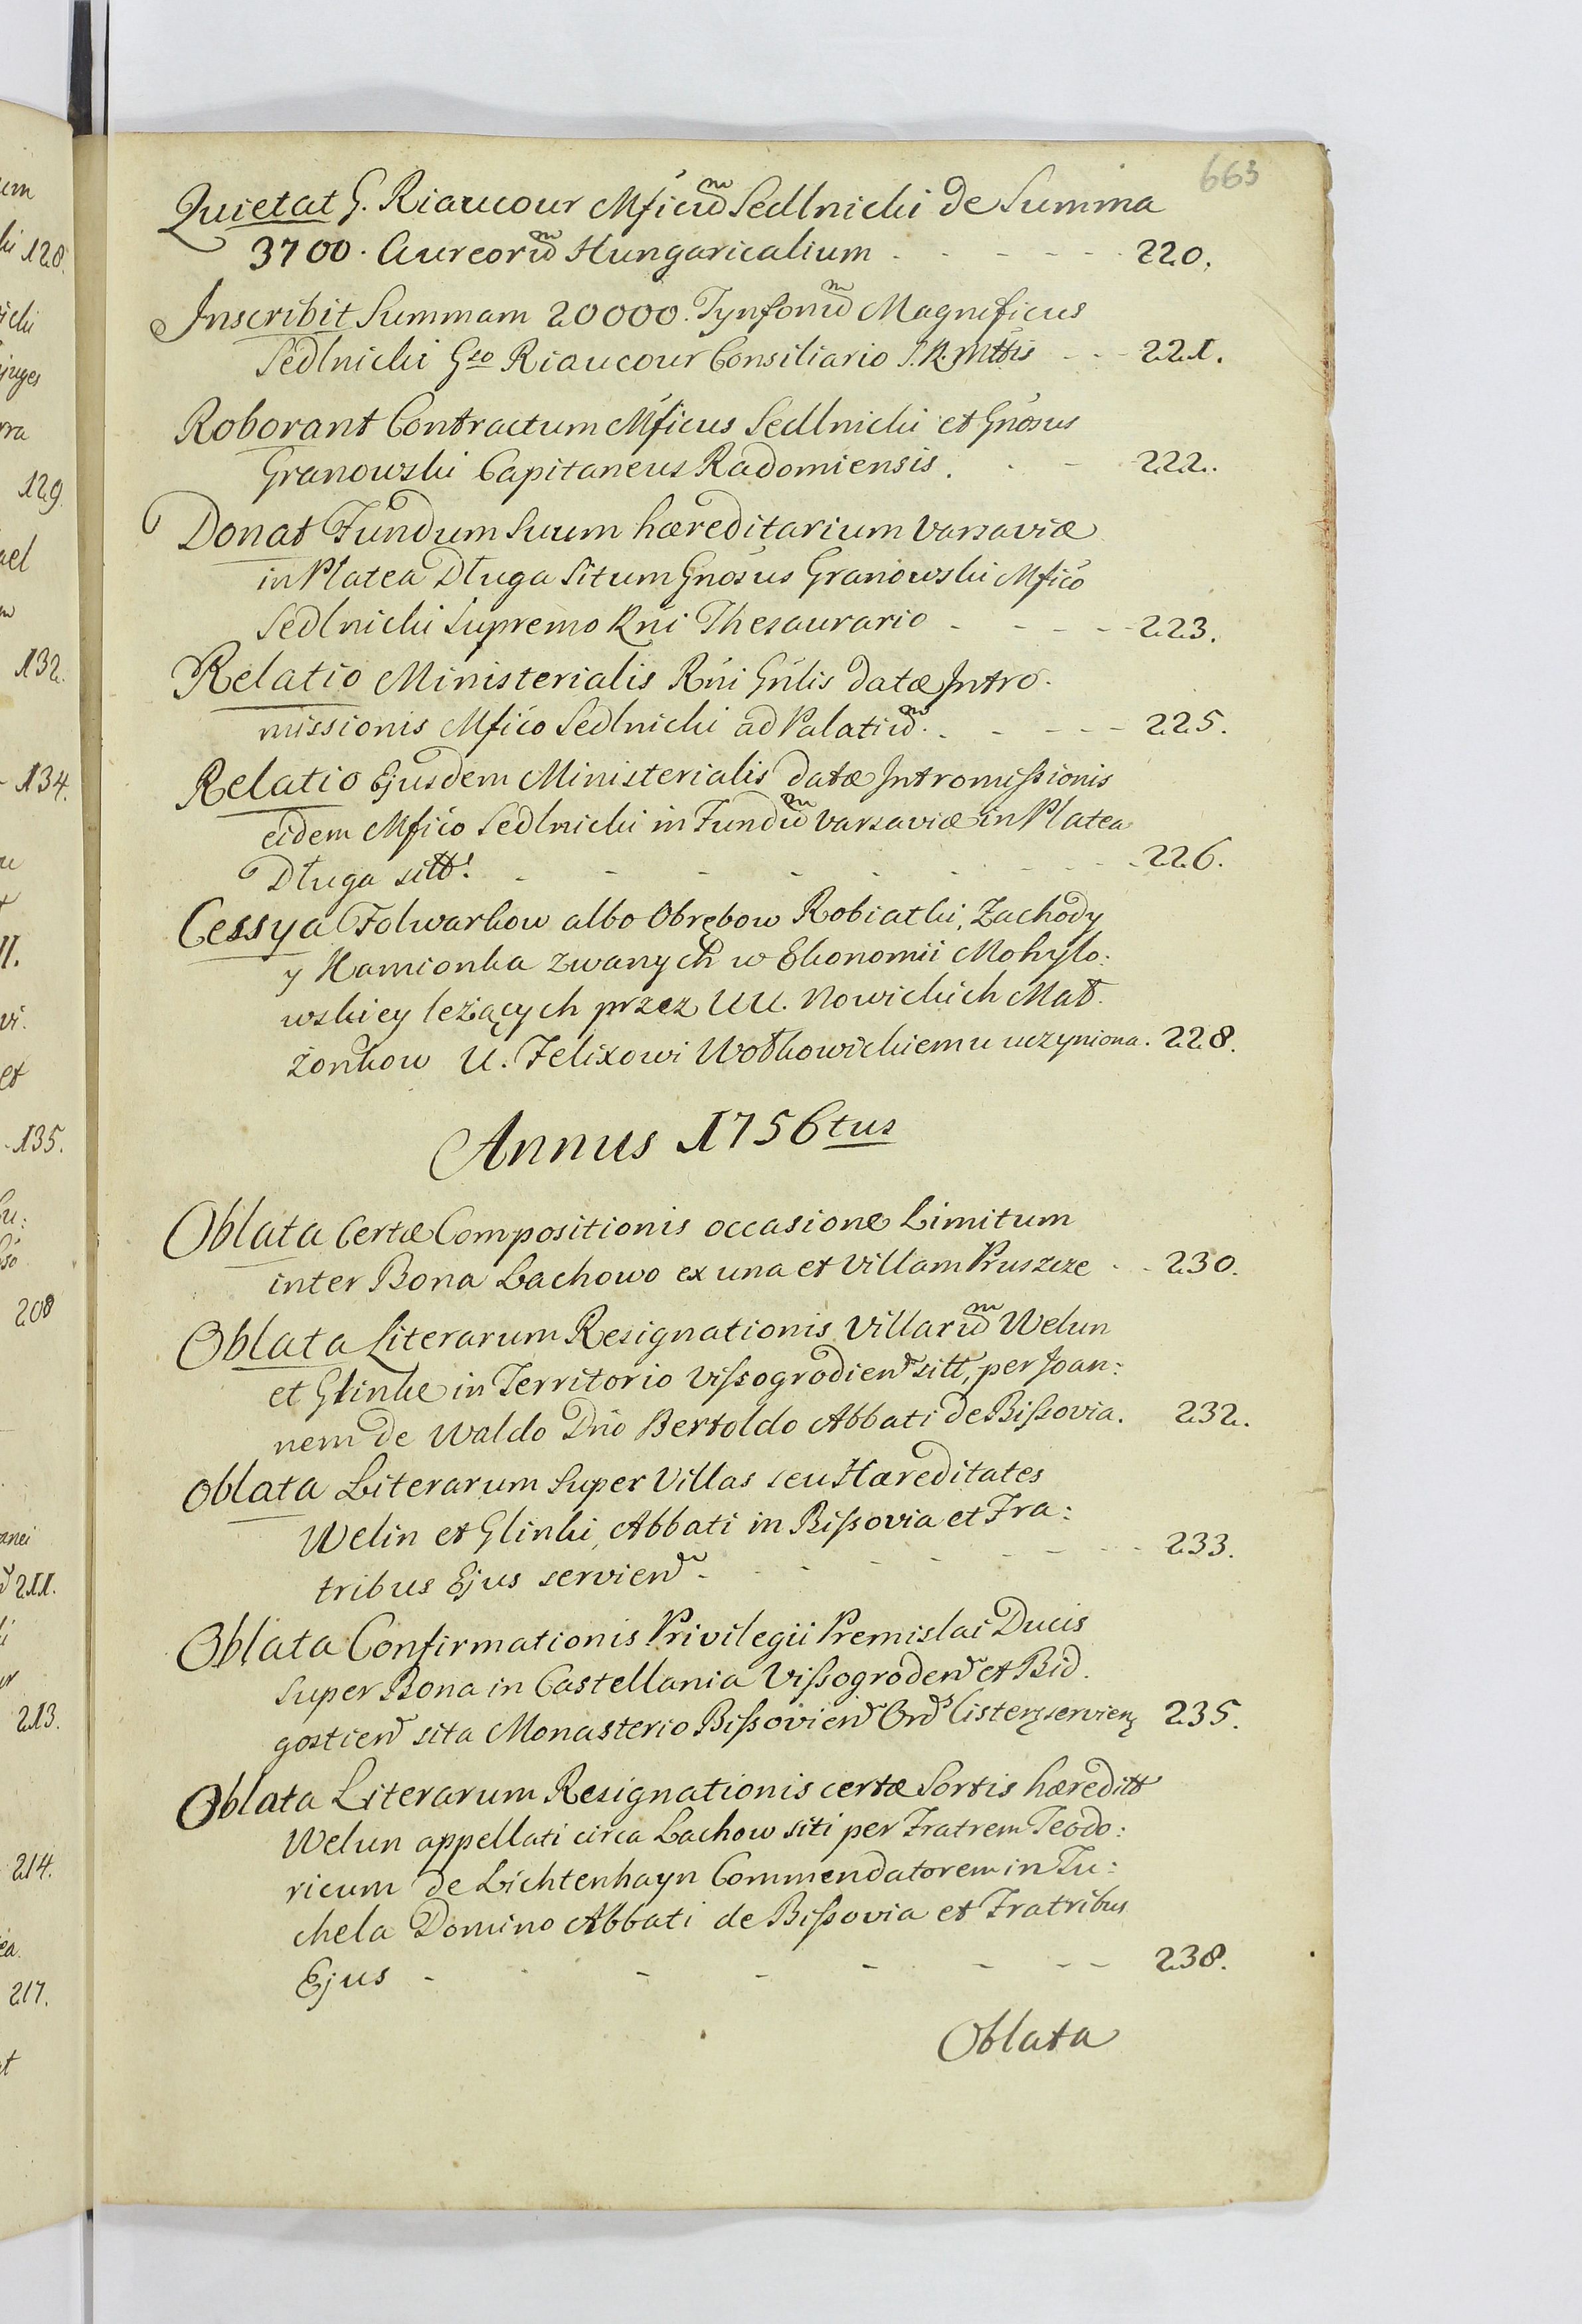 663
Quietat G. Riaucour Mficum Sedlnicki de Summa
3700. Aureorum Hungaricalium - - - - - 220.
Inscribit Summam 20000. Tynfonum Magnificus
Sedlnicki Gso Riaucour Consiliario S. R. Mttis - - - 221.
Roborant Contractum Mficus Sedlnicki et Gnosus
Granowski Capitaneus Radomiensis. - - - 222.
Donat Fundum Suum hæreditarium Varsaviæ
in Platea Długa Situm Gnosus Granowski Mfico
Sedlnicki Supremo Rni Thesaurario - - - - 223.
Relatio Ministerialis Rni Gnlis datæ Intro-
missionis Mfico Sedlnicki ad Palatium. - - - - - 225.
Relatio Ejusdem Ministerialis datæ Intromissionis
eidem Mfico Sedlnicki in Fundum Varsaviæ in Platea
Długa sitt. - - - - - - - 226.
Cessya Folwarkow albo Obrębow Robiatki, Zachody
y Kamionka zwanych w Ekonomii Mohylo:
wskiey leżących przez UU. Nowickich Mał-
żonkow U. Felixowi Wołkowickiemu uczyniona. 228.
Annus 1756tus
Oblata Certæ Compositionis occasione Limitum
inter Bona Lachowo ex una et Villam Pruszcze - - 230.
Oblata Literarum Resignationis Villarum Welun
et Glinke in Territorio Vissogrodien sitt, per Joan:
nem de Waldo Dno Bertoldo Abbati de Bissovia. 232.
Oblata Literarum Super Villas seu Hæreditates
Welin et Glinki, Abbati in Bissovia et Fra:
tribus Ejus servien - - - - - - - 233.
Oblata Confirmationis Privilegii Premislai Ducis
Super Bona in Castellania Vissogroden et Bid-
gostien sita Monasterio Bissovien Ords Cister servien 235.
Oblata Literarum Resignationis certæ Sortis hæreditt
Welun appellati circa Lachow siti per Fratrem Teodo:
ricum de Lichtenhayn Commendatorem in Tu:
chela Domino Abbati de Bissovia et Fratribus
Ejus - - - - - - - 238.
Oblata